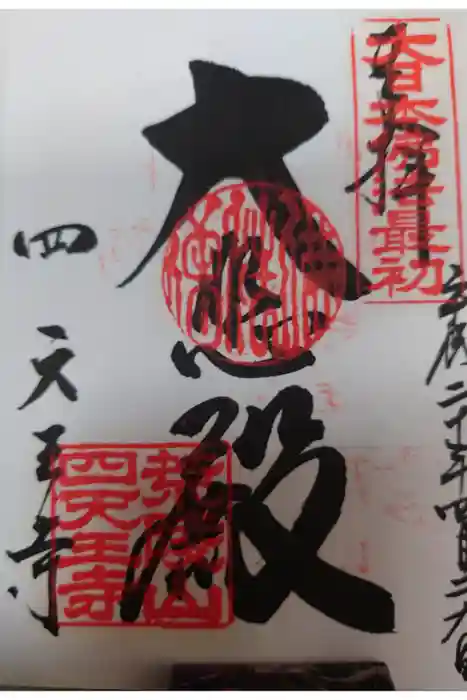 大日本佛法最初
奉拝
平成二十年四月二六日
大悲殿
四天王寺
荒陵山
四天王寺